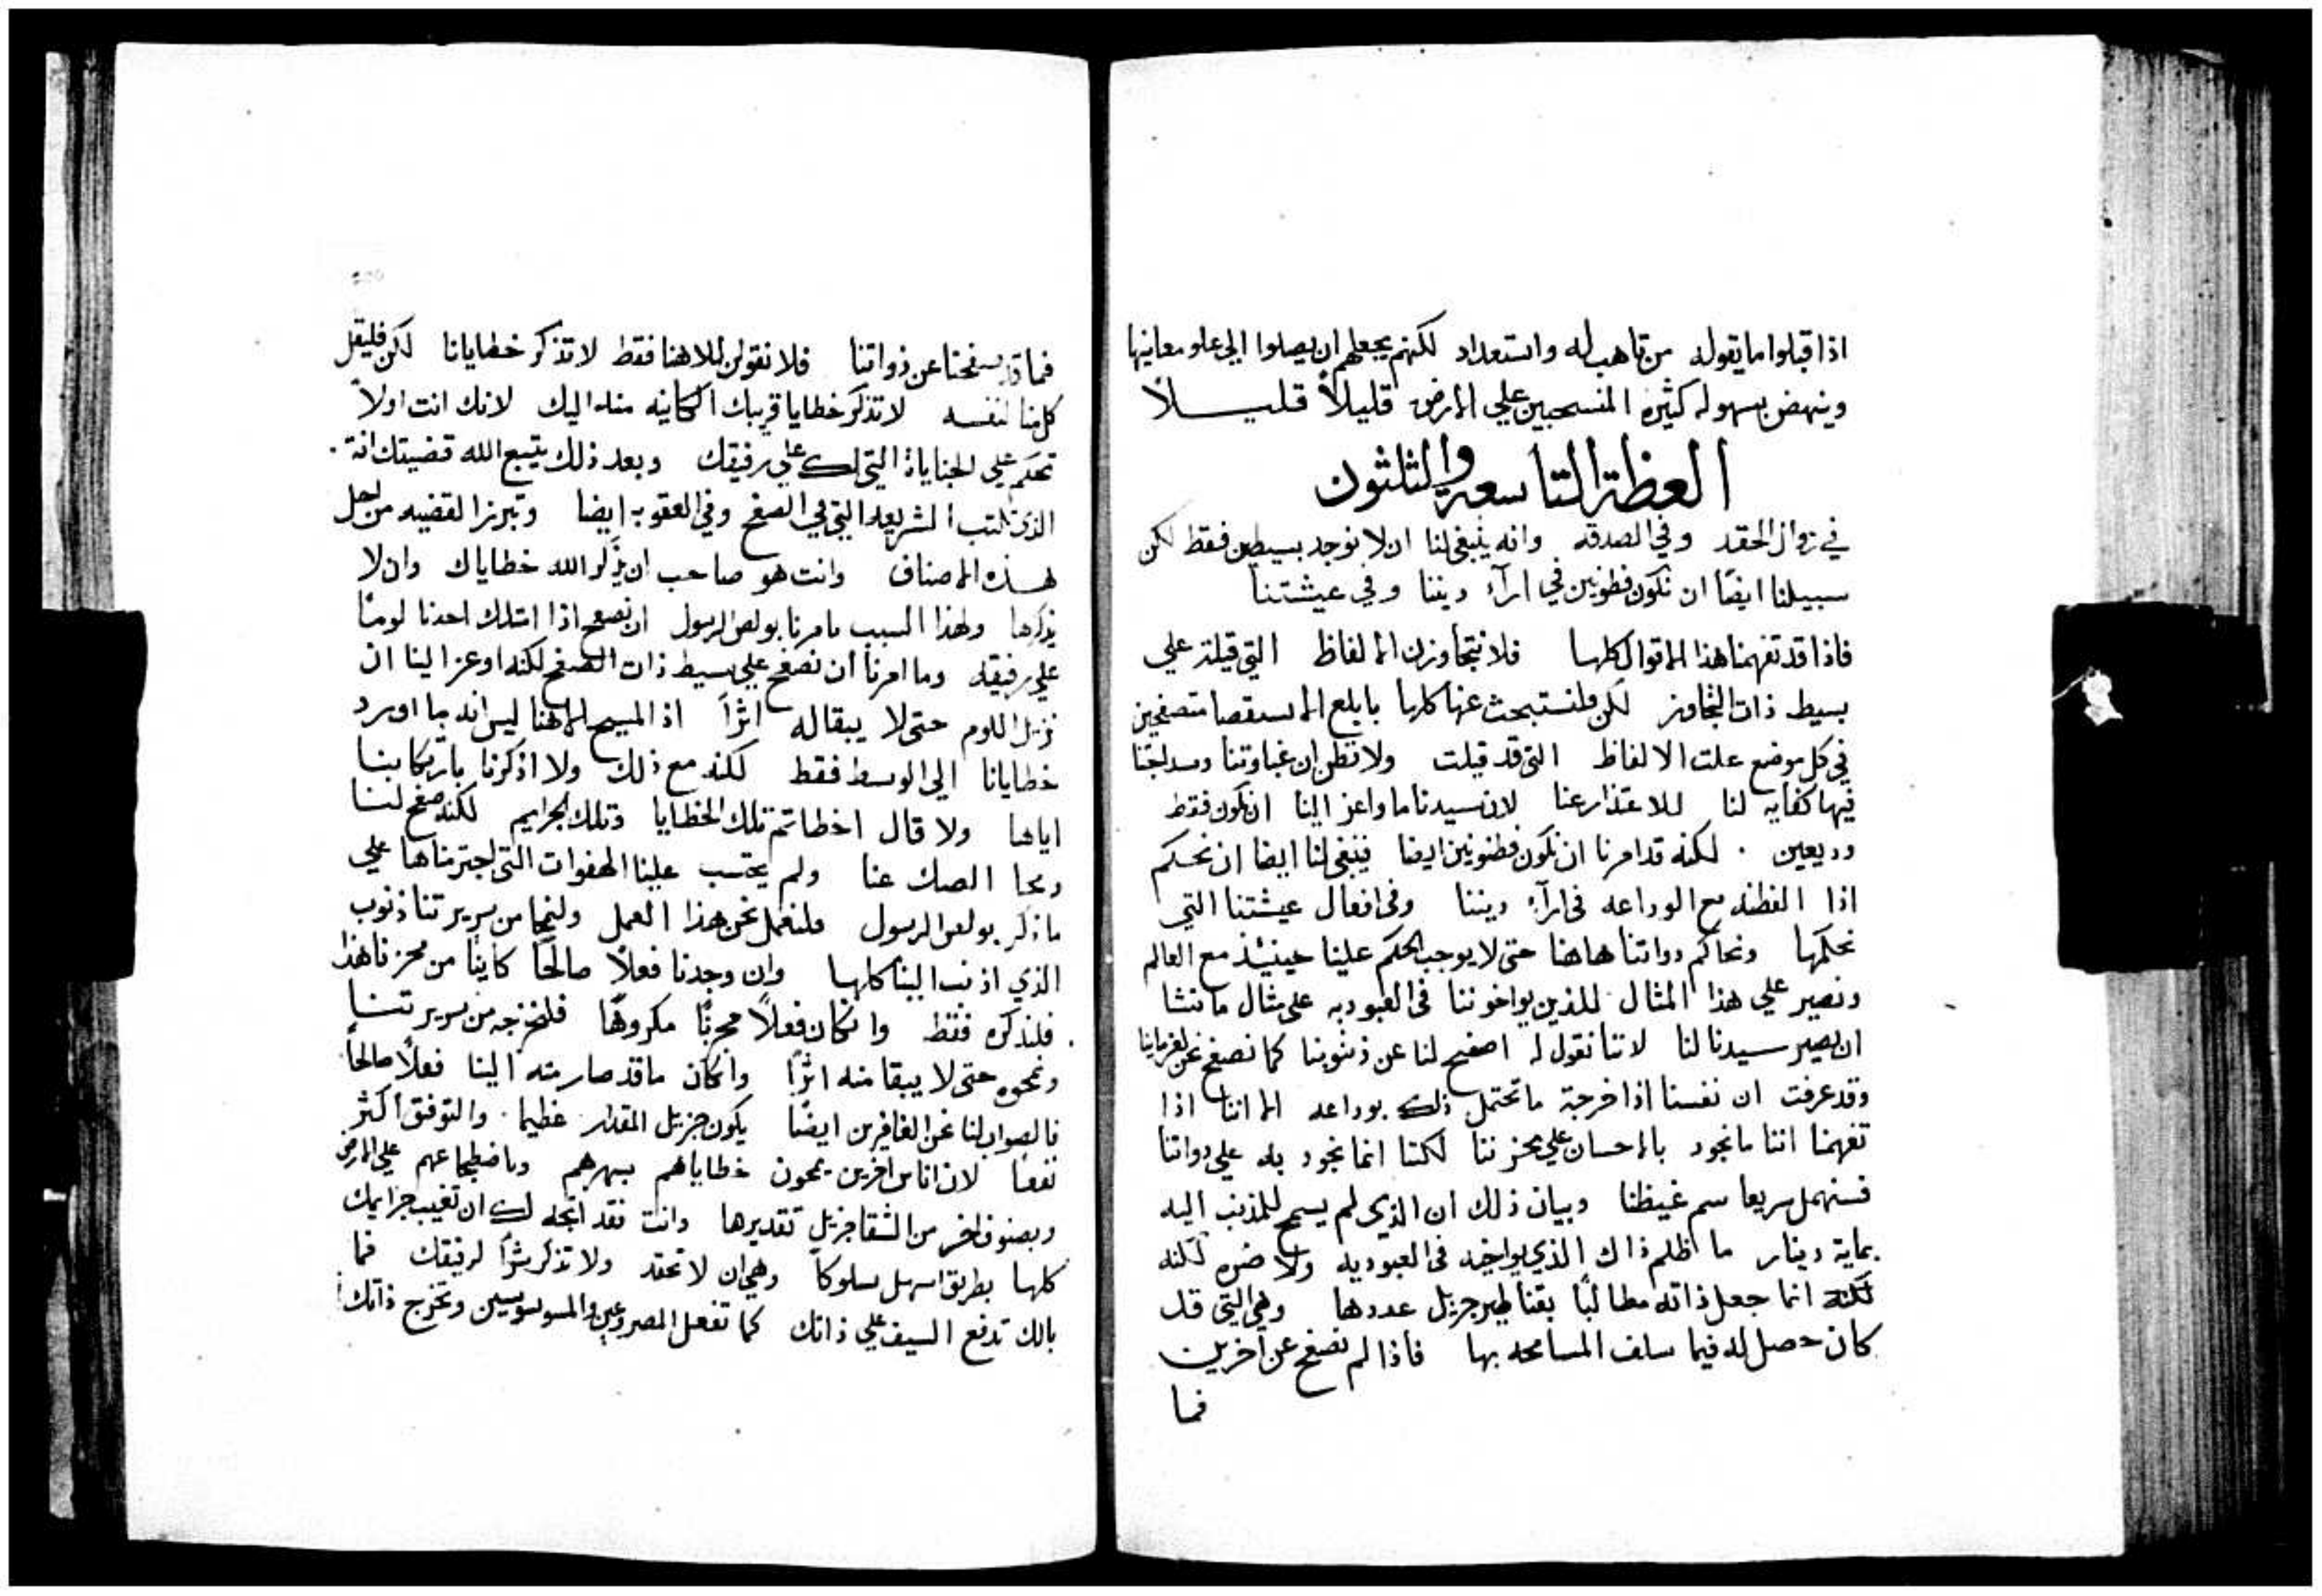 اذا اقبلوا ما يقوله من تاهب له واستعداد لكنهم يجعلهم ان يصلوا الي علو معانيها
وينهض بسهوله كثيره المنسحبين علي الارض قليلاً قليلاً
العظة التاسعة والثلثون
في زوال الحقد وفي الصدقه وانه ينبغي لنا ان لا نوجد بسيطين فقط لكن
سبيلنا ايضًا ان نكون فطونين في ارآء ديننا وفي عيشتنا
فاذا قد تفهمنا هذا الاقوال كلها فلا نتجاوزن الالفاظ التي قيلة علي
بسيط ذات التجاوز لكن فلنستبحث عنها كلها بابلع الاستقصا متصفحين
في كل موضع علت الالفاظ التي قد قيلت ولا نظن ان غباوتنا وسداجتنا
فيها كفايه لنا للاعتذار عنا لان سيدنا ما واعز الينا ان نكون فقط
وديعين . لكنه قد امرنا ان نكون فطنونين ايضا فينبغي لنا ايضا ان نحكم
اذا الفطنه مع الوداعه في ارآء ديننا وفي افعال عيشتنا التي
نحكمها ونحاكم دواتنا هاهنا حتى لا يوجب الحكم علينا حينيئذ مع العالم
ونصير علي هذا المثال للذين يواخوننا في العبوديه على مثال ما نتشا
ان يصير سيدنا لنا لاننا نقول له اصفح لنا عن ذنوبنا كما نصفح نحن لغرماينا
وقد عرفت ان نفسنا اذا خرجة ما تحتمل ذلك بوداعه الا اننا اذا
تفهمنا اننا ما نجود بالاحسان علي محزننا لكننا انما نجود به علي دواتنا
فسنهمل سريعا سم غيظنا وبيان ذلك ان الذي لم يسمح للمذنب اليه
بماية دينار ما اظلم ذاك الذي يواخيه في العبوديه ولا ضره لكنه
لكنه انما جعل ذاته مطالبًا بقناطير جزيل عددها وهي التي قد
كان حصل له فيما سلف المسامحه بها فاذا لم نصفح عن اخرين
فما
فما قد صفحنا عن ذواتنا فلا نقولن للاهنا فقط لا تذكر خطايانا لكن فليقل
كل منا لنفسه لا تذكر خطايا قريبك الكاينه منه اليك لانك انت اولاً
تحكم علي الجناياة التي لك علي رفيقك وبعد ذلك يتبع الله قضيتك انة .
الذي تكتب الشريعه التي في الصفح وفي العقوبه ايضا وتبرز القضيه من اجل
هذه الاصناف وانت هو صاحب ان يذكر الله خطاياك وان لا
يذكرها ولهذا السبب يامرنا بولص الرسول ان نصفح اذا امتلك احدنا لومًا
علي رفيقه وما امرنا ان نصفح علي بسيط ذات الصفح لكنه اوعز الينا ان
نزيل اللوم حتى لا يبقا له اثرًا اذ المسيح الاهنا ليس انه ما اورد
خطايانا الي الوسط فقط لكنه مع ذلك ولا اذكرنا بارتكابنا
اياها ولا قال اخطاتم تلك الخطايا وتلك الجرايم لكنه صفح لنا
ومحا الصك عنا ولم يحتسب علينا الهفوات التي اجترمناها علي
ما ذكر بولص الرسول فلنعمل نحن هذا العمل ولنمحا من سريرتنا ذنوب
الذي اذنب الينا كلها وان وجدنا فعلاً صالحًا كاينًا من محزننا هذا
فلنذكره فقط وان كان فعلاً محزنًا مكروهًا فلنخرجه من سريرتنا
ونمحوه حتى لا يبقا منه اثرًا وان كان ما قد صار منه الينا فعلاً صالحًا
فالصواب لنا نحن الغافرين ايضًا يكون جزيل المقدار عظيما . والتوفق اكثر
نفعا لان اناس اخرين يمحون خطاياهم بسهرهم وباضطجاعهم علي الارض
وبصنوف اخر من الشقا جزيل تقديرها وانت فقد اتجه لك ان تغيب جرايمك
كلها بطريق اسهل سلوكًا وهي ان لا تحقد ولا تذكر شرًا لرفيقك فما
بالك تدفع السيف علي ذاتك كما تفعل المصروعين والموسوسين وتخرج ذاتك